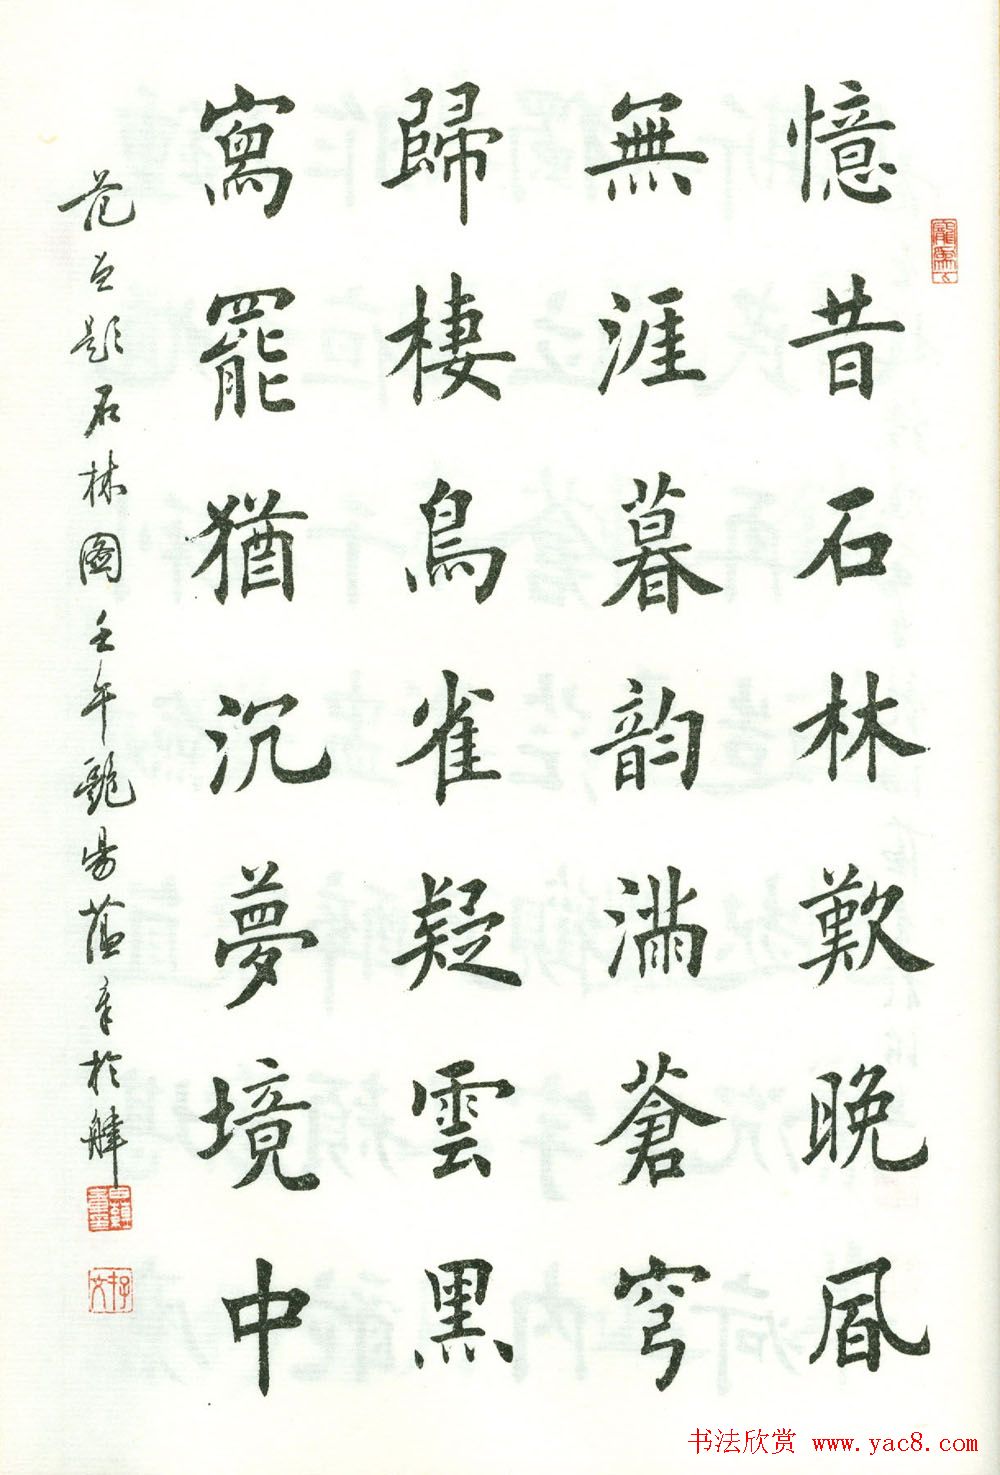 憶昔石林歎晚風
無涯暮韵滿蒼穹
歸棲鳥雀疑雲黑
寫罷猶沉夢境中
范曾題石林圖壬午艷陽蓝幸於
书法欣赏 www.yac8.com